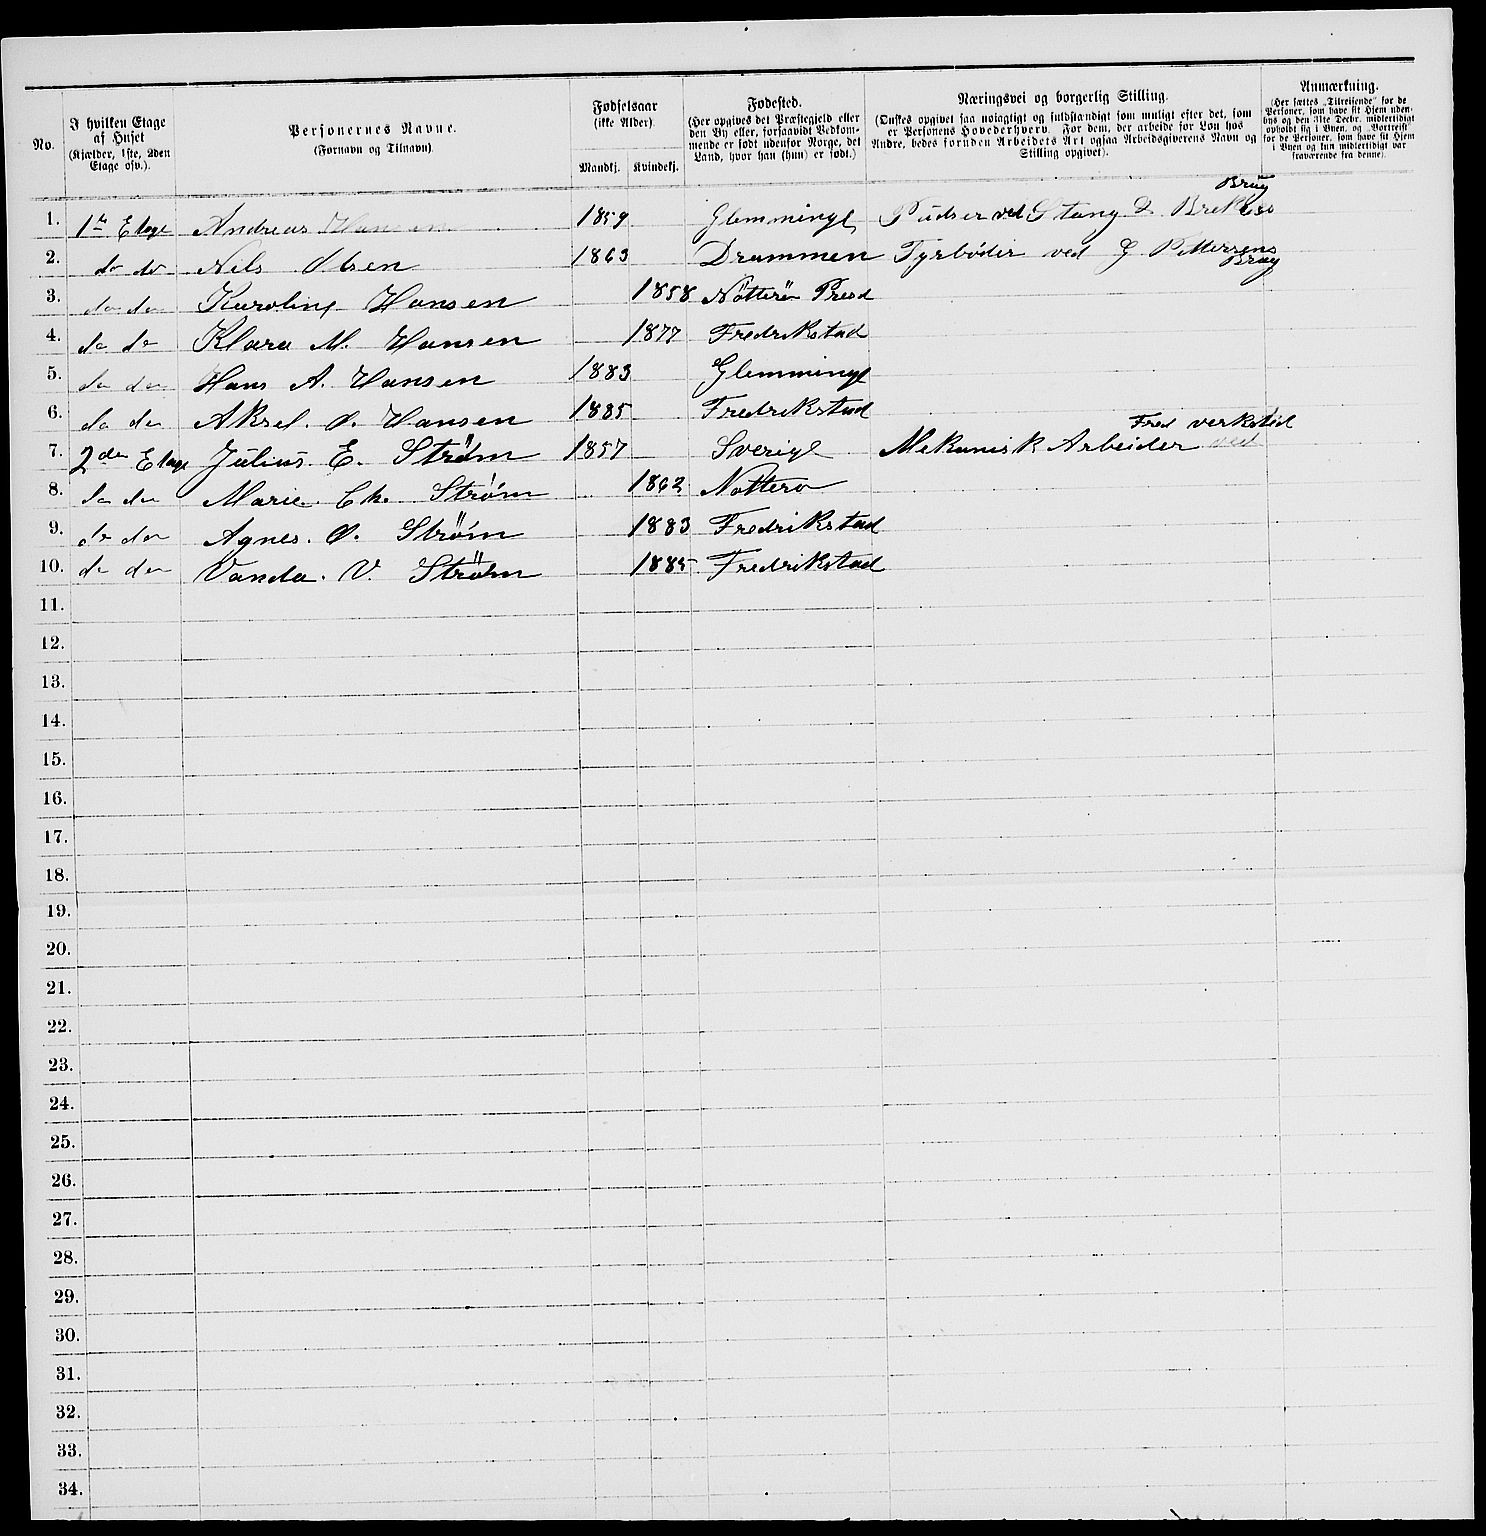 No.
I hvilken Etage af Huset (Kjælder, 1ste, 2den Etage osv.).
Personernes Navne. (Fornavn og Tilnavn).
Fødselsaar (ikke Alder). Mandkj. Kvindekj.
Fødested. (Her opgives det Præstegjeld eller den By eller, forsaavidt Vedkommende er født udenfor Norge, det Land, hvor han (hun) er født.)
Næringsvei og borgerlig Stilling. (Ønskes opgivet saa nøiagtigt og fuldstændigt som muligt efter det, som er Personens Hovederhverv. For dem, der arbeide for Løn hos Andre, bedes foruden Arbeidets Art ogsaa Arbeidsgiverens Navn og Stilling opgivet).
Anmærkning. (Her sættes „Tilreisende" for de Personer, som have sit Hjem udenbys og den 31te Decbr. midlertidigt opholdt sig i Byen, og „Bortreist" for de Personer, som have sit Hjem i Byen og kun midlertidigt var fraværende fra denne).
1. 1ste Etage Andreas Hansen 1859 Glemminge Pudser ved Stang & Brug
2. do do Nils Olsen 1863 Drammen Fyrbøder ved G Pettersens Brug
3. do do Karoline Hansen 1858 Nötterö Presd
4. do do Klara M. Hansen 1877 Fredrikstad
5. do do Hans A. Hansen 1883 Glemminge
6. do do Aksel. O. Hansen 1885 Fredrikstad
7. 2den Etage Julius. E. Ström 1857 Sverige Mekanisk Arbeider ved Fred verksted
8. do do Marie. Ch. Ström 1862 Nøtterø
9. do do Agnes. O. Ström 1883 Fredrikstad
10. do do Vanda. V. Ström 1885 Fredrikstad
11.
12.
13.
14.
15.
16.
17.
18.
19.
20.
21.
22.
23.
24.
25.
26.
27.
28.
29.
30.
31.
32.
33.
34.